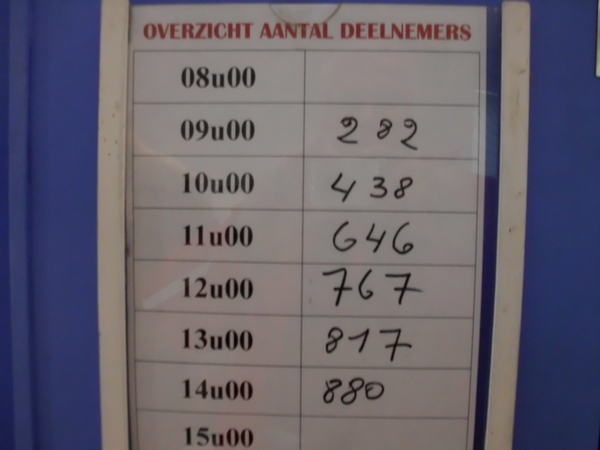 OVERZICHT AANTAL DEELNEMERS
08u00
09u00 282
10u00 438
11u00 646
12u00 767
13u00 817
14u00 880
15u00